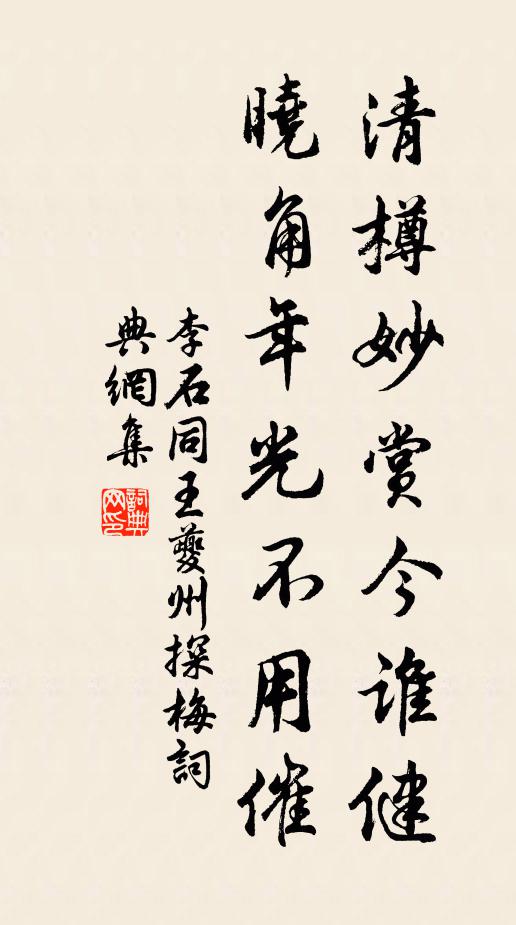 清樽妙賞今誰健
曉角年光不用催
李石同王夔州探梅詞
典網集
詞典網印